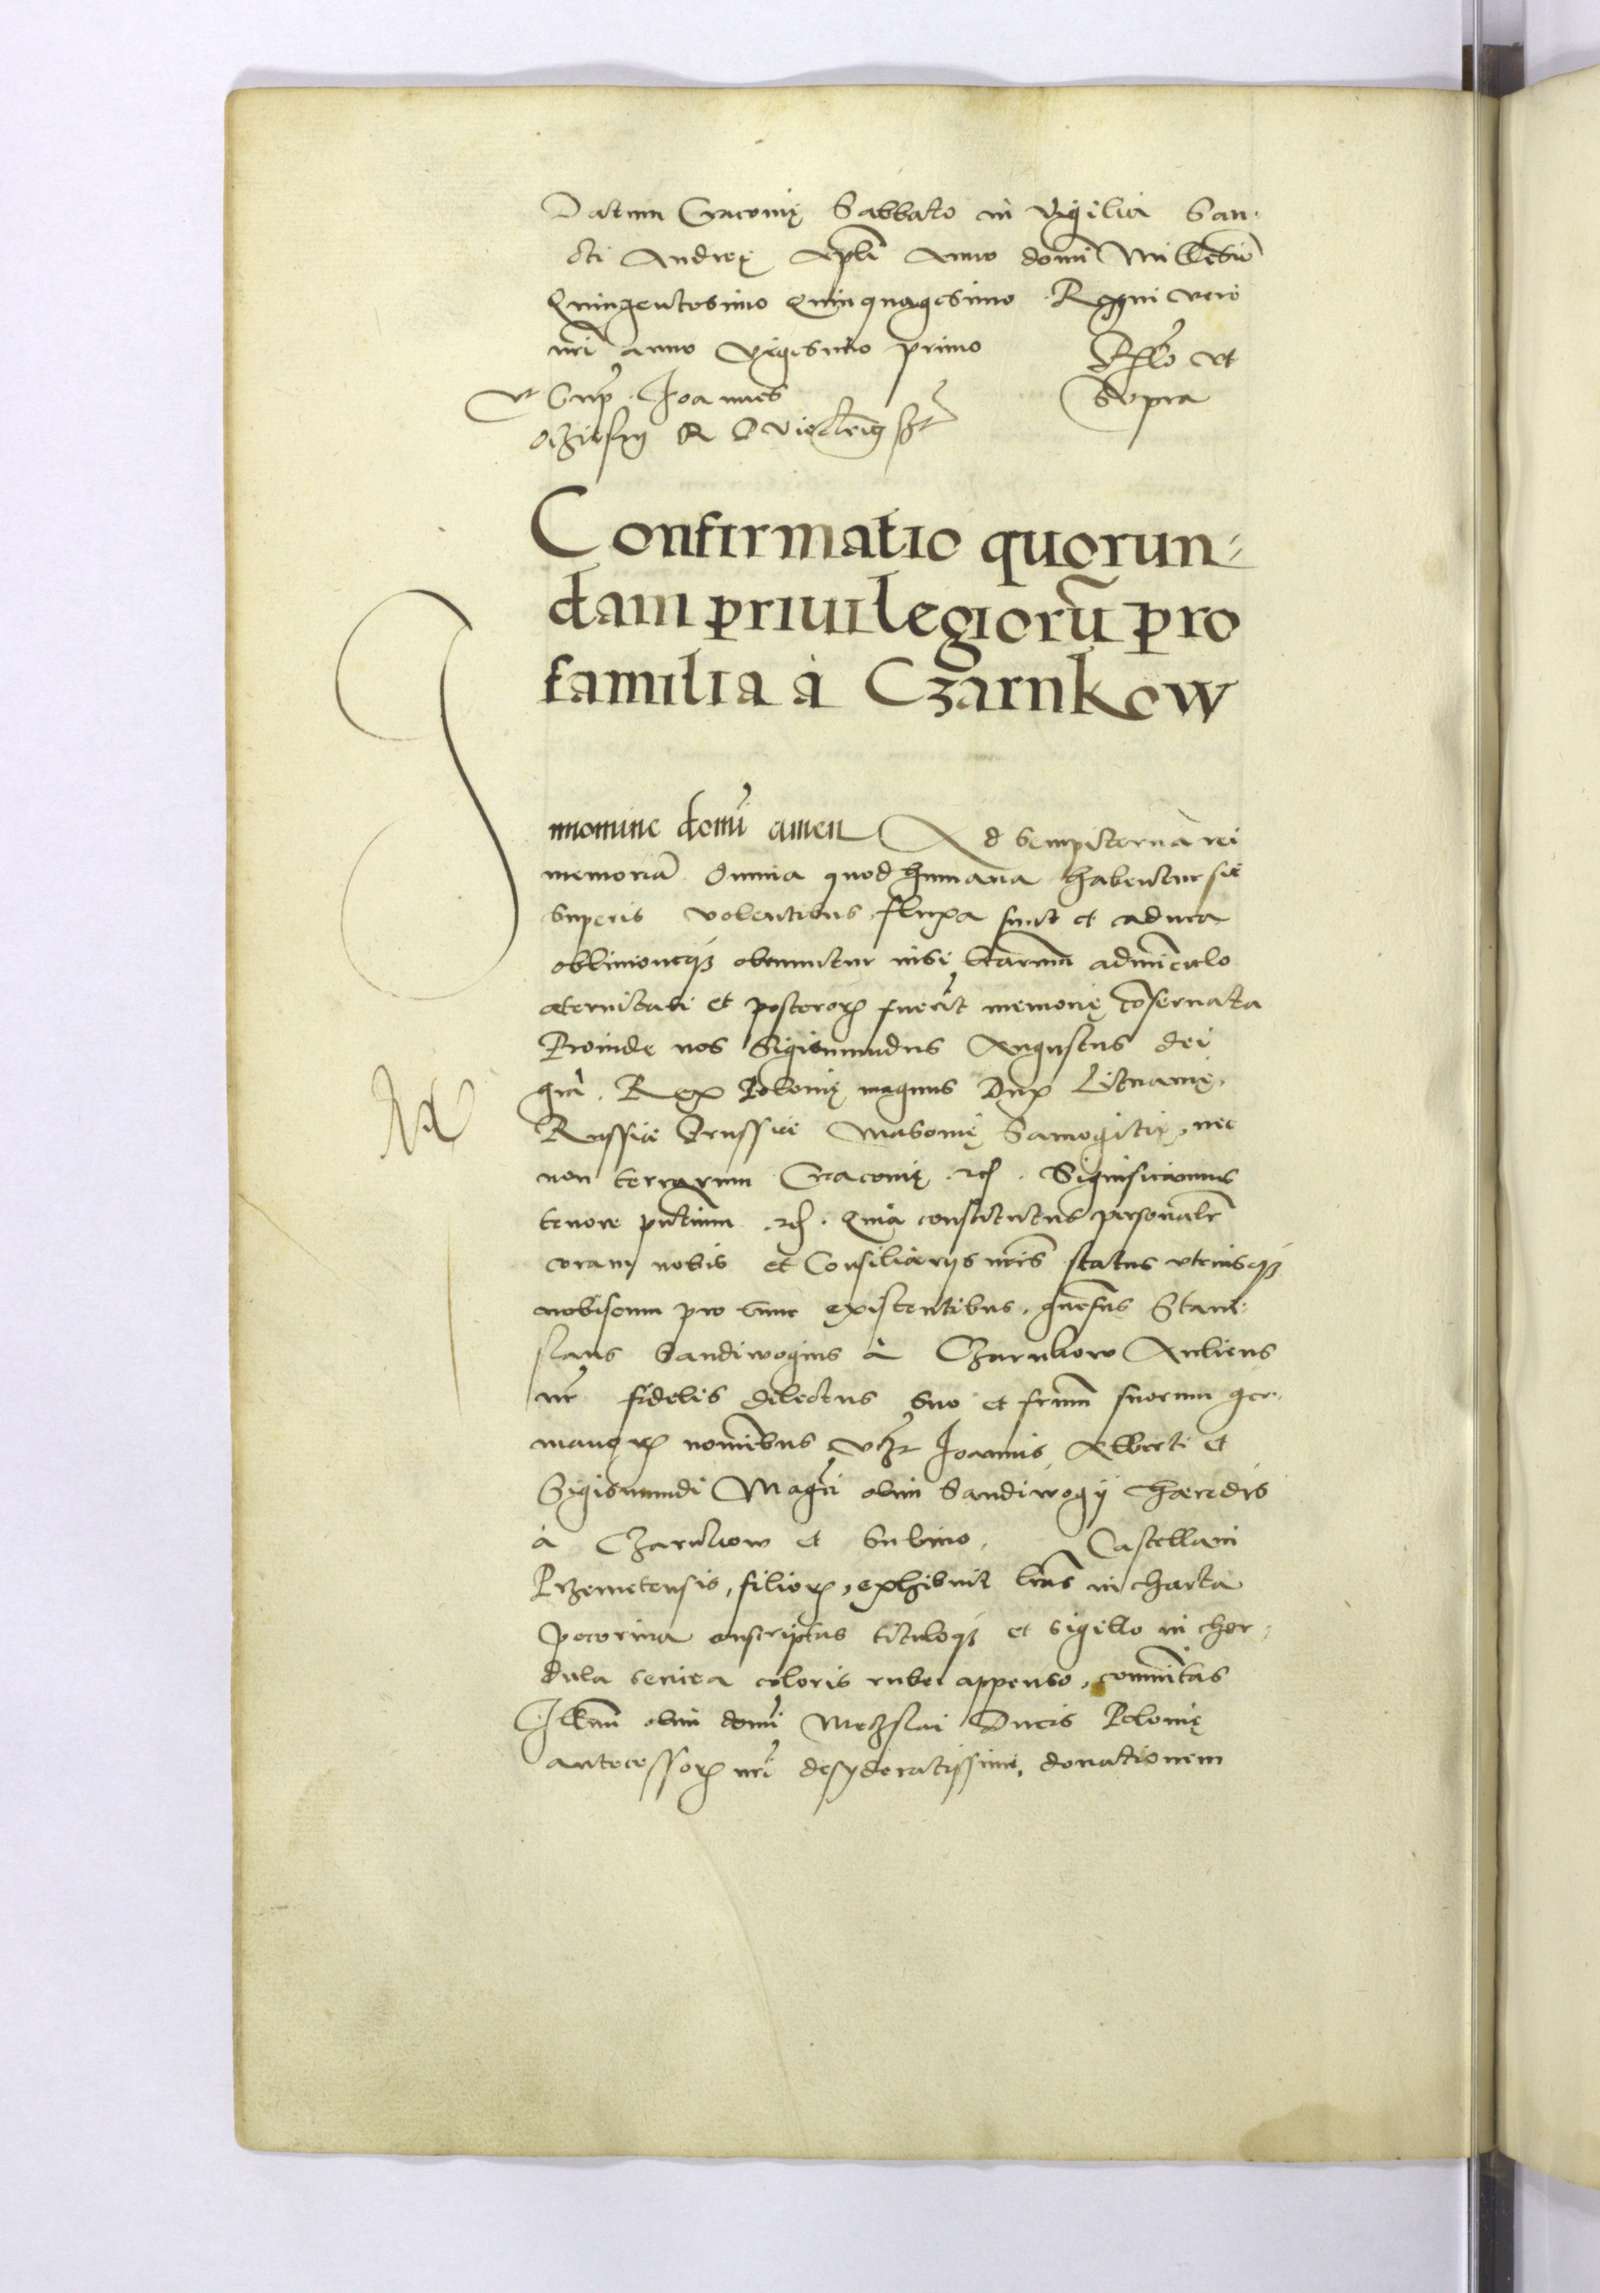 Datum Cracovię Sabbato in vigilia San-
cti Andreę Apli Anno domi Millesio
Quingentesimo Quinquagesimo Regni vero
nri anno vigesimo primo Rllo vt
vt Sup Joannes Supra
Oczieski R
Confirmatio quorun-
dam priuilegiorũ pro
familia à Czarnkow
In nomine domi amen Ad sempiternã rei
memoriã Omnia quod humana habentur sic
superis volentibus fluxa sunt et caduca
obliuioneq obruuntur nisi lrarum adminiculo
æternitati et posteror fuerit memorię cõseruata
Proinde nos Sigismundus Augustus dei
grã Rex Polonię magnus Dux Lituanię,
Russiæ Prussiæ Masouię Samogitię, nec
non terrarum Cracovię etc. Significamus
tenore pntium etc. Quia constitutus personalr
coram nobis et Consiliarijs nris status vtriusq
nobiscum pro tunc existentibus, gnosus Stani-
slaus Sandiwogius à Czarnkow Aulicus
nr fidelis dilectus suo et frum suorum ger-
manor nomibus vz Joannis Alberti et
Sigismundi Magci olim Sandiwogij hæredis
à Czarnkow et Sulimo, Castellani
Przemetensis, filior, exhibuit lras in charta
pecorina conscriptas tituloq et sigillo in chor-
dula serica coloris rubei appenso, comunitas
Illrum olim domi Meczslai Ducis Polonię
antecessor nri desyderatissimi, donationem